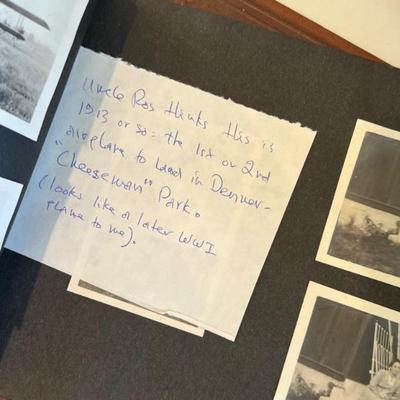 Uncle Ros thinks this is
1913 or so: the 1st or 2nd
airplane to land in Denver-
"Cheeseman" Park.
(looks like a later WWI
plane to me).